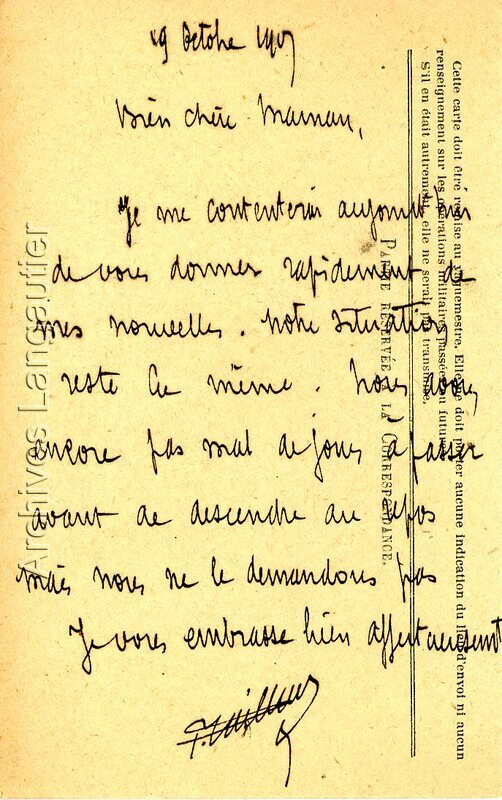 19 Octobre 1917
Bien chère Maman,
Je me contenterai aujourd'hui
de vous donner rapidement de
mes nouvelles. Notre situation
reste la même. Nous avons
encore pas mal de jours à passer
avant de descendre au repos
mais nous ne le demandons pas
Je vous embrasse bien affectueusement
Cette carte doit être remise au vaguemestre. Elle ne doit porter aucune indication du lieu d'envoi ni aucun
renseignement sur les opérations militaires passées ou futures.
S'il en était autrement, elle ne serait pas transmise.
PARTIE RÉSERVÉE À LA CORRESPONDANCE.
Archives Langautier